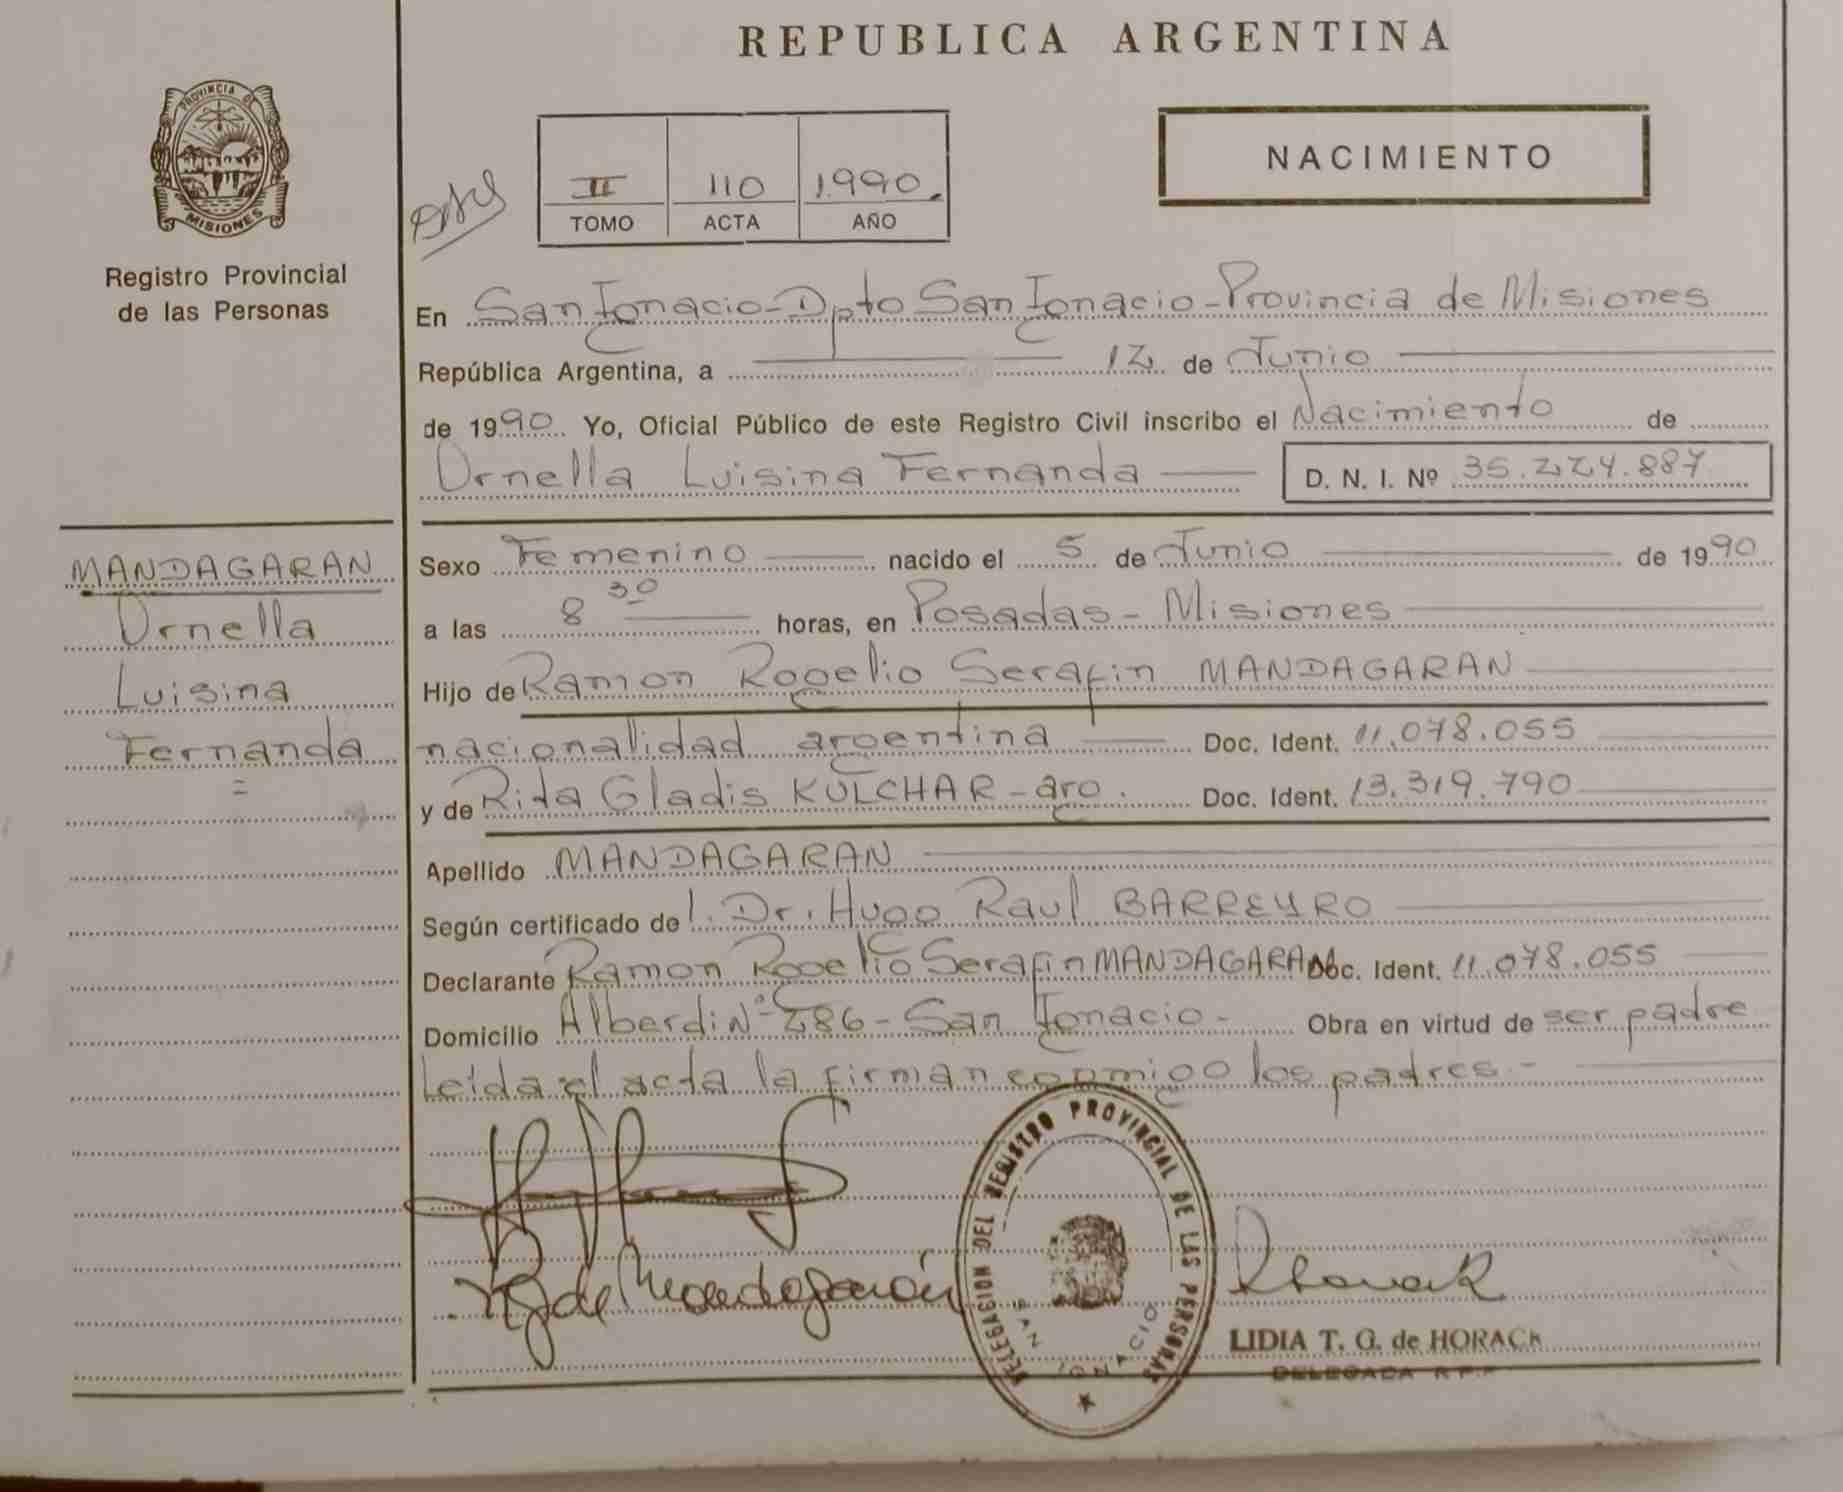 REPUBLICA ARGENTINA
PROVINCIA DE
MISIONES
Registro Provincial
de las Personas
II 110 1.990.
TOMO ACTA AÑO
NACIMIENTO
En San Ignacio - Dpto San Ignacio - Provincia de Misiones
República Argentina, a 12 de Junio
de 1990 Yo, Oficial Público de este Registro Civil inscribo el Nacimiento de
Ornella Luisina Fernanda D. N. I. Nº 35.224.887
MANDAGARAN
Ornella
Luisina
Fernanda
Sexo Femenino nacido el 5 de Junio de 1990
a las 8 30 horas, en Posadas - Misiones
Hijo de Ramon Rogelio Serafin MANDAGARAN
nacionalidad argentina Doc. Ident. 11.078.055
y de Rita Gladis KULCHAR - arg. Doc. Ident. 13.319.790
Apellido MANDAGARAN
Según certificado de l. Dr. Hugo Raul BARREYRO
Declarante Ramon Rogelio Serafin MANDAGARAN Doc. Ident. 11.078.055
Domicilio Alberdi Nº 286 - San Ignacio - Obra en virtud de ser padre
Leída el acta la firman conmigo los padres -
DELEGACION DEL REGISTRO PROVINCIAL DE LAS PERSONAS
SAN IGNACIO
de Mandagarán
LIDIA T. G. de HORACK
DELEGADA R.P.P